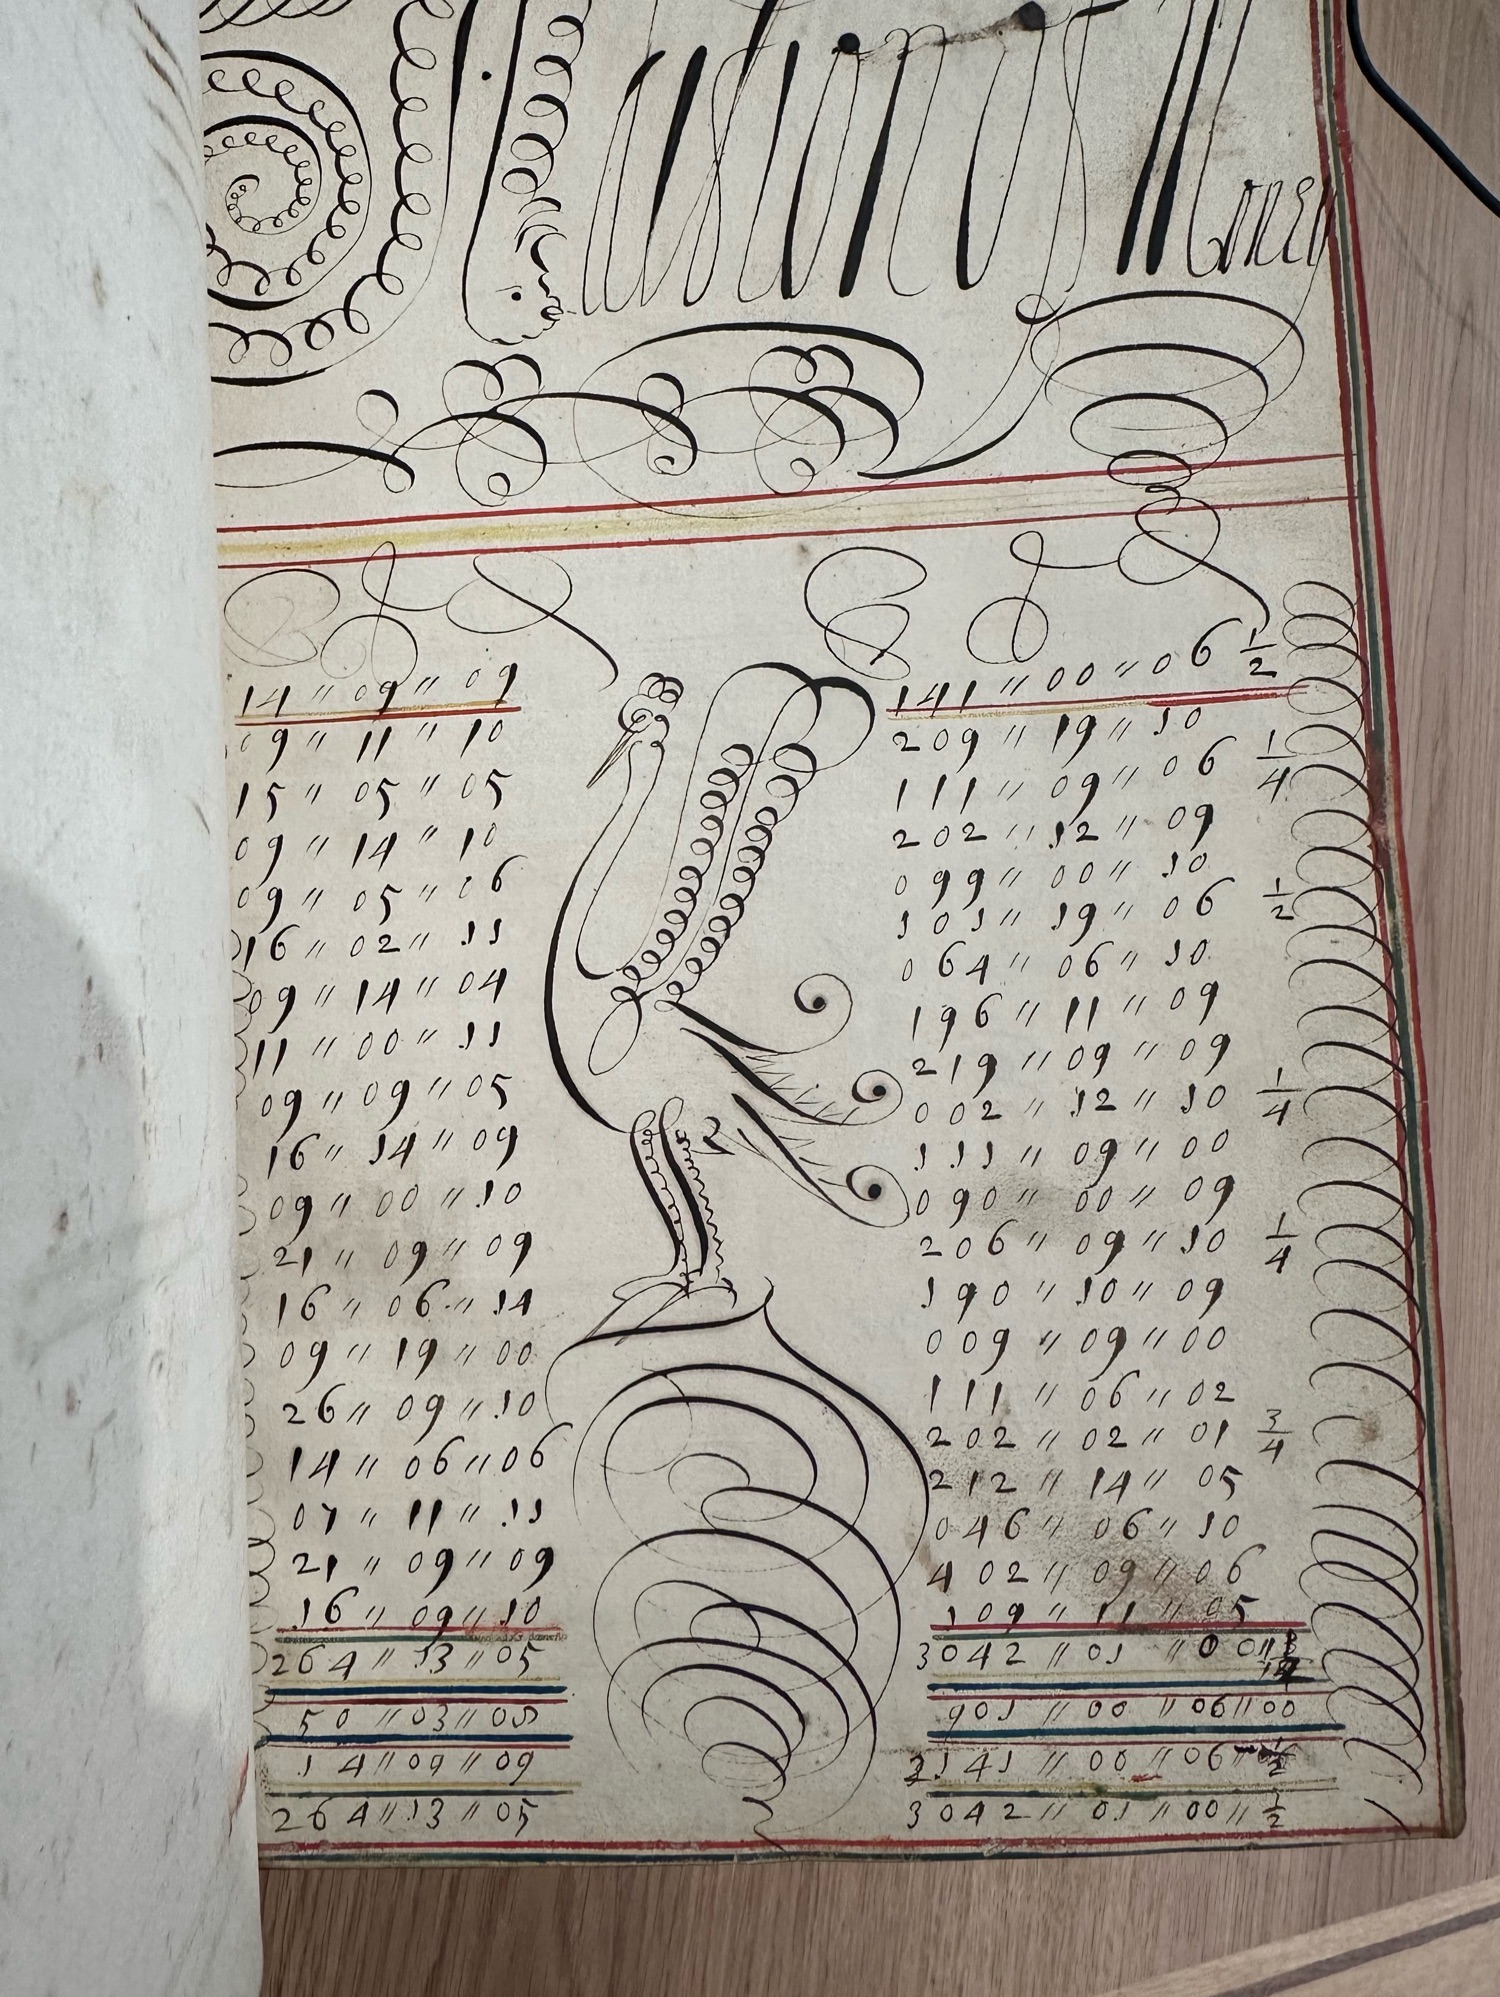 Addition of Money
14 〃 09 〃 09
09 〃 11 〃 10
15 〃 05 〃 05
09 〃 14 〃 10
09 〃 05 〃 06
16 〃 02 〃 11
09 〃 14 〃 04
11 〃 00 〃 11
09 〃 09 〃 05
16 〃 14 〃 09
09 〃 00 〃 10
21 〃 09 〃 09
16 〃 06 〃 14
09 〃 19 〃 00
26 〃 09 〃 10
14 〃 06 〃 06
07 〃 11 〃 11
21 〃 09 〃 09
16 〃 09 〃 10
264 〃 13 〃 05
50 〃 03 〃 08
14 〃 09 〃 09
264 〃 13 〃 05
141 〃 00 〃 06 1/2
209 〃 19 〃 10
111 〃 09 〃 06 1/4
202 〃 12 〃 09
099 〃 00 〃 10
101 〃 19 〃 06 1/2
064 〃 06 〃 10
196 〃 11 〃 09
219 〃 09 〃 09
002 〃 12 〃 10 1/4
111 〃 09 〃 00
090 〃 00 〃 09
206 〃 09 〃 10 1/4
190 〃 10 〃 09
009 〃 09 〃 00
111 〃 06 〃 02
202 〃 02 〃 01 3/4
212 〃 14 〃 05
046 〃 06 〃 10
402 〃 09 〃 06
109 〃 11 〃 05
3042 〃 01 〃 00
901 〃 00 〃 06 〃 00
2141 〃 00 〃 06 〃 1/2
3042 〃 01 〃 00 〃 1/2